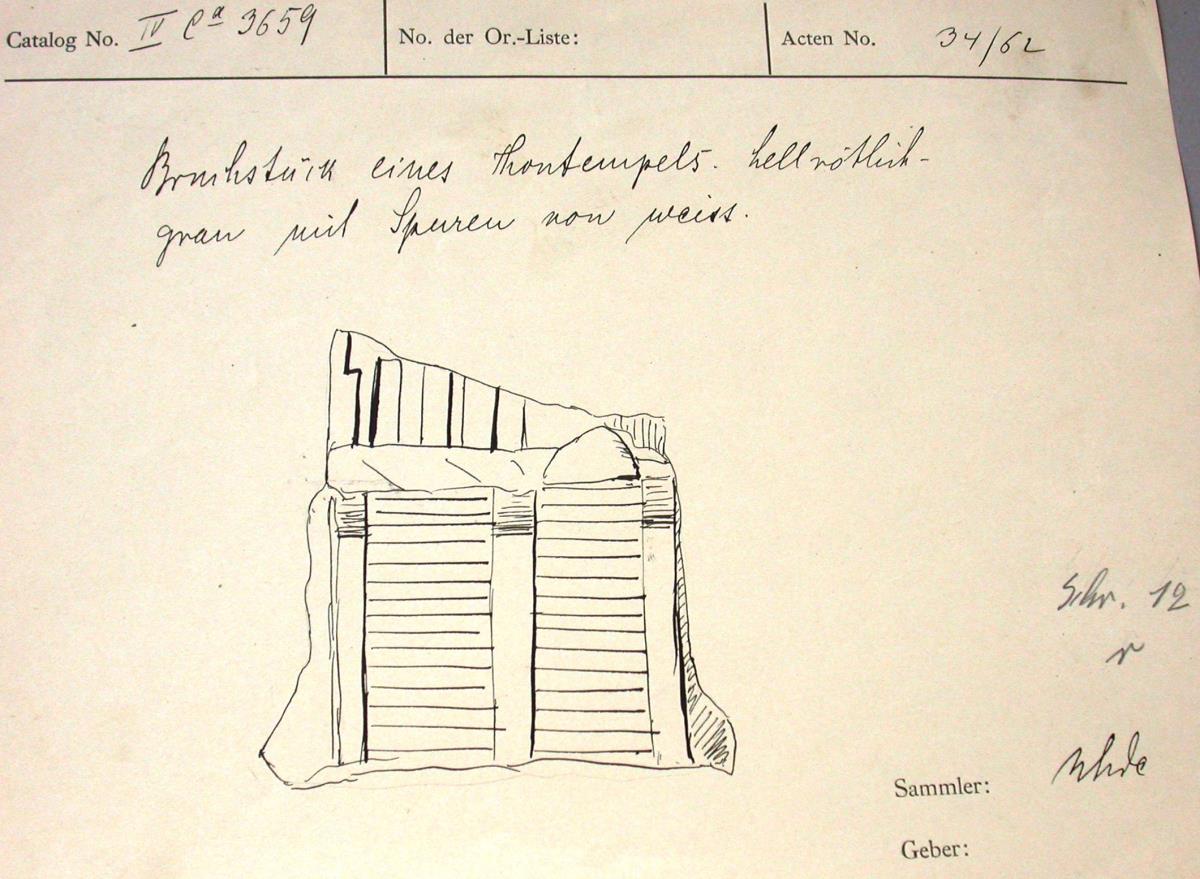 Catalog No. IV Ca 3659 No. der Or.-Liste: Acten No. 34/62
Bruchstück eines Thontempels. hellrötlich-
grau mit Spuren von weiss.
Schr. 12
r
Sammler: Uhde
Geber: